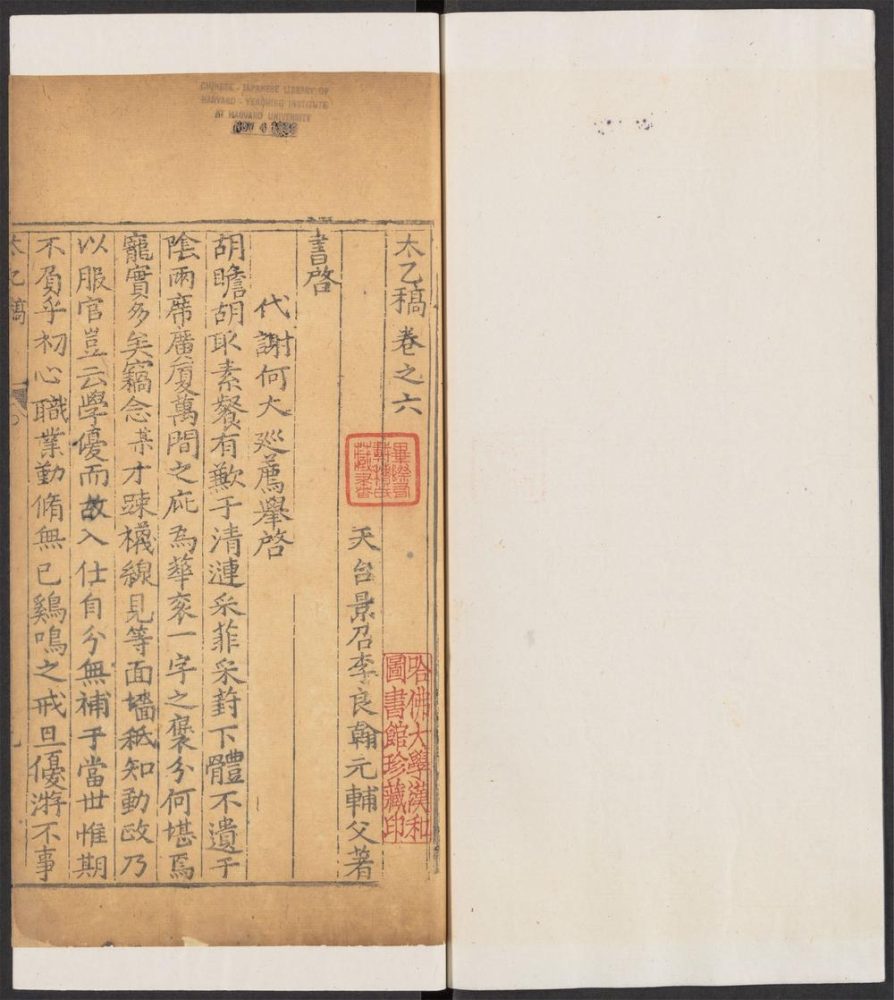 CHINESE - JAPANESE LIBRARY OF
HARVARD - YENCHING INSTITUTE
AT HARVARD UNIVERSITY
NOV 4
太乙稿 卷之六
哈佛大學漢和
圖書館珍藏印
天台景召李良翰元輔父著
書啓
代謝何大廵薦舉啓
胡瞻胡取素餐有歉于清漣采菲采葑下體不遺于
陰兩席廣廈萬間之庇為華衮一字之褒分何堪焉
寵實多矣竊念某才踈襪線見等面墻秪知動改乃
以服官豈云學優而故入仕自分無補于當世惟期
不負乎初心職業勤脩無已鷄鳴之戒旦優游不事
太乙稿